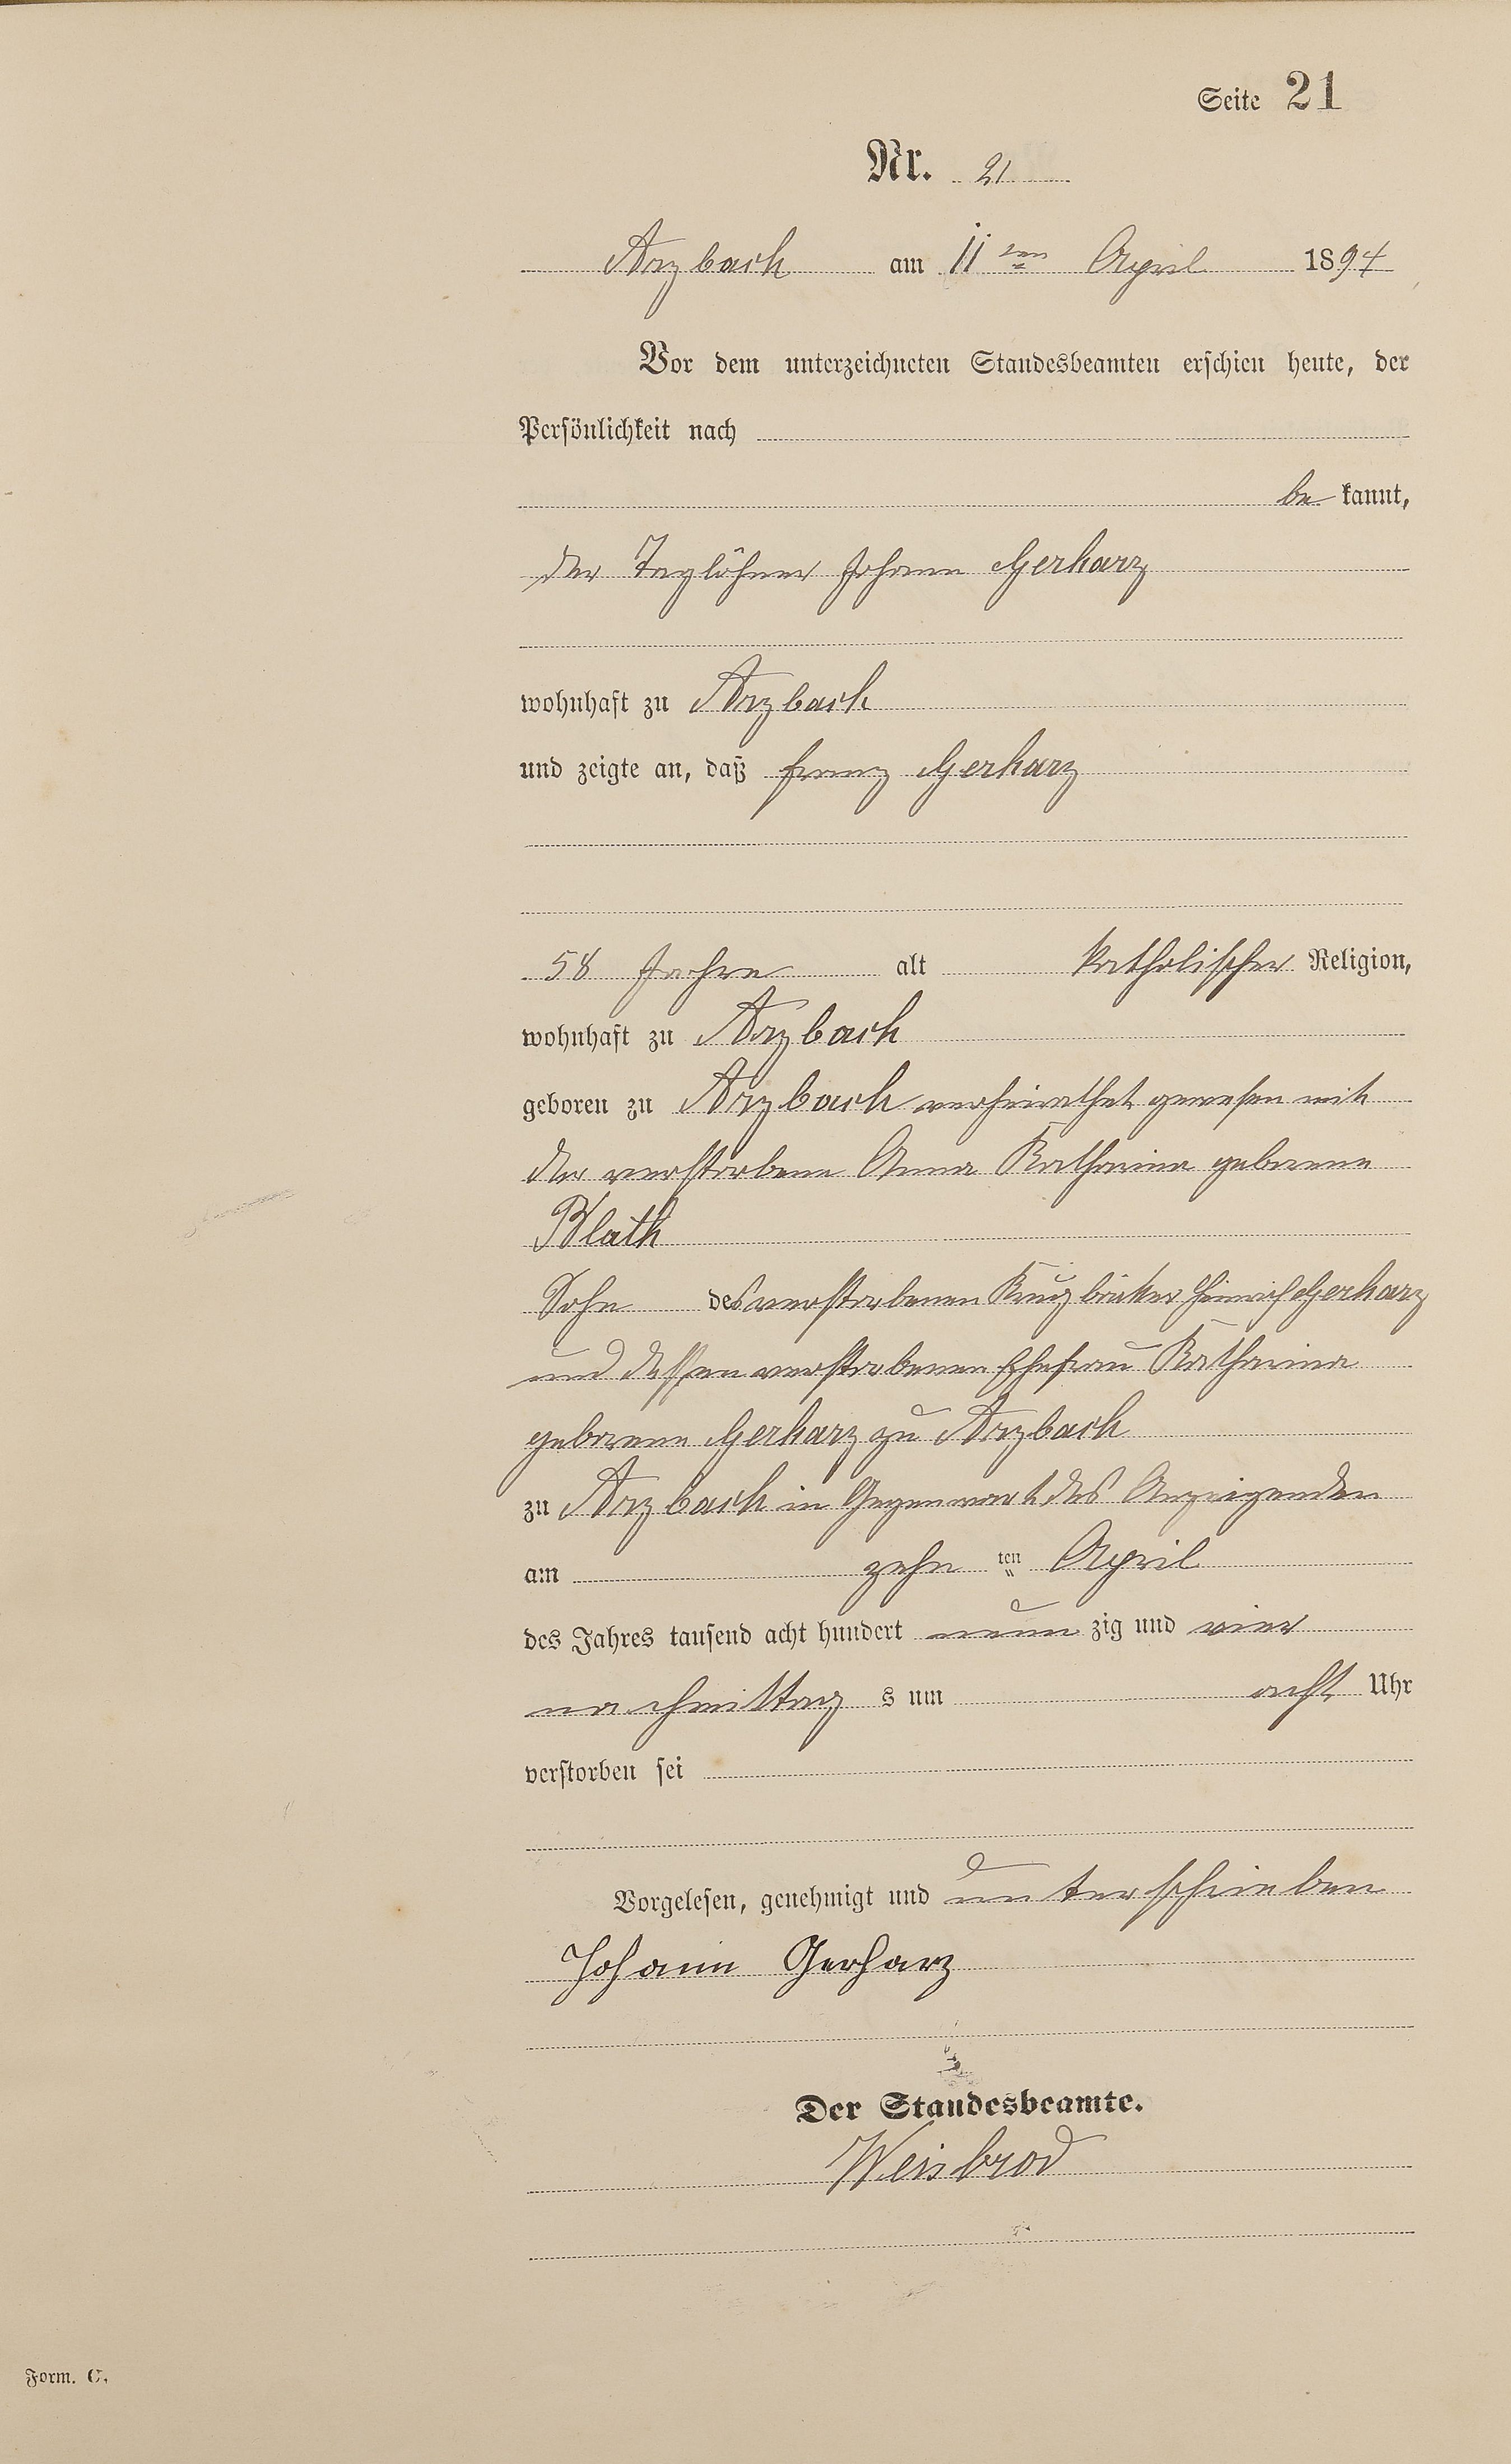 Seite 21
Nr. 21
Arzbach am 11ten April 1894
Vor dem unterzeichneten Standesbeamten erschien heute, der
Persönlichkeit nach
be kannt,
der Taglöhner Johann Gerharz
wohnhaft zu Arzbach
und zeigte an, daß Franz Gerharz
58 Jahre alt katholischer Religion,
wohnhaft zu Arzbach
geboren zu Arzbach verheirathet gewesen mit
der verstorbene Anna Katharina geborene
Blath
Sohn des verstorbenen Krugbäcker Heinrich Gerharz
und dessen verstorbenen Ehefrau Katharina
geborene Gerharz zu Arzbach
zu Arzbach in Gegenwart des Anzeigenden
am zehn ten April
des Jahres tausend acht hundert neun zig und vier
nachmittag s um acht Uhr
verstorben sei
Vorgelesen, genehmigt und unterschrieben
Johann Gerharz
Der Standesbeamte.
Weisbrod
Form. C.